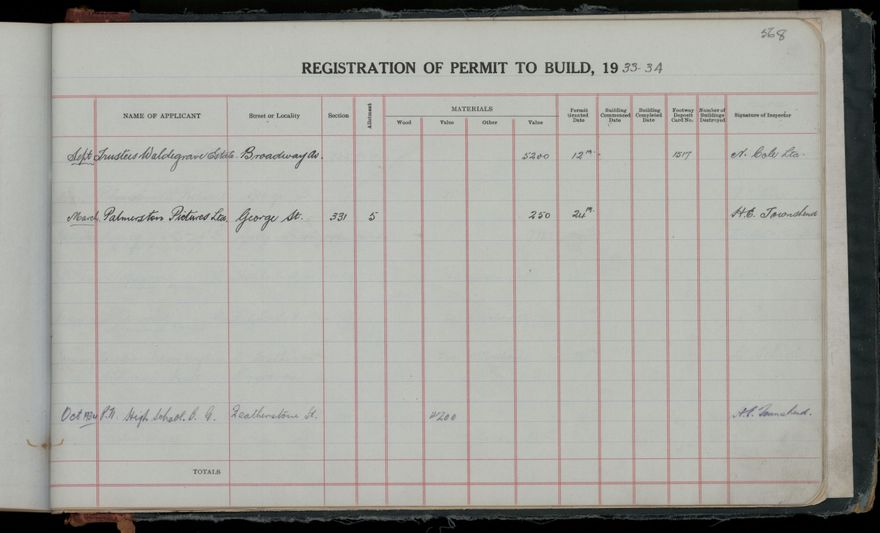 568
REGISTRATION OF PERMIT TO BUILD, 1933-34
NAME OF APPLICANT Street or Locality Section Allotment MATERIALS Wood Value Other Value Permit Granted Date Building Commenced Date Building Completed Date Footway Deposit Card No. Number of Buildings Destroyed Signature of Inspector
Sept Trustees Waldegrave Estate Broadway Av. 5200 12th 1517 N. Cole Ltd.
March Palmerston Pictures Ltd. George St. 331 5 250 24th H.E. Townshend
Oct 1934 P.N. High School. Featherstone St. 4200 Townshend.
TOTALS